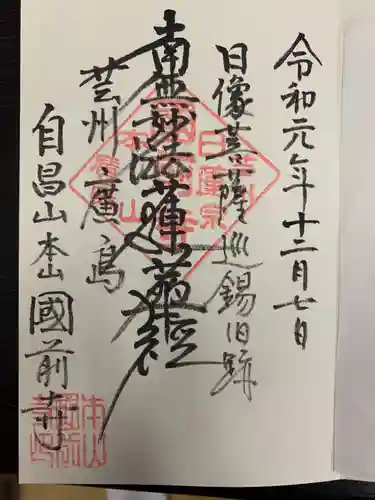 令和元年十二月七日
日像菩薩巡錫旧跡
南無妙法蓮華経
芸州廣島
自昌山本山國前寺